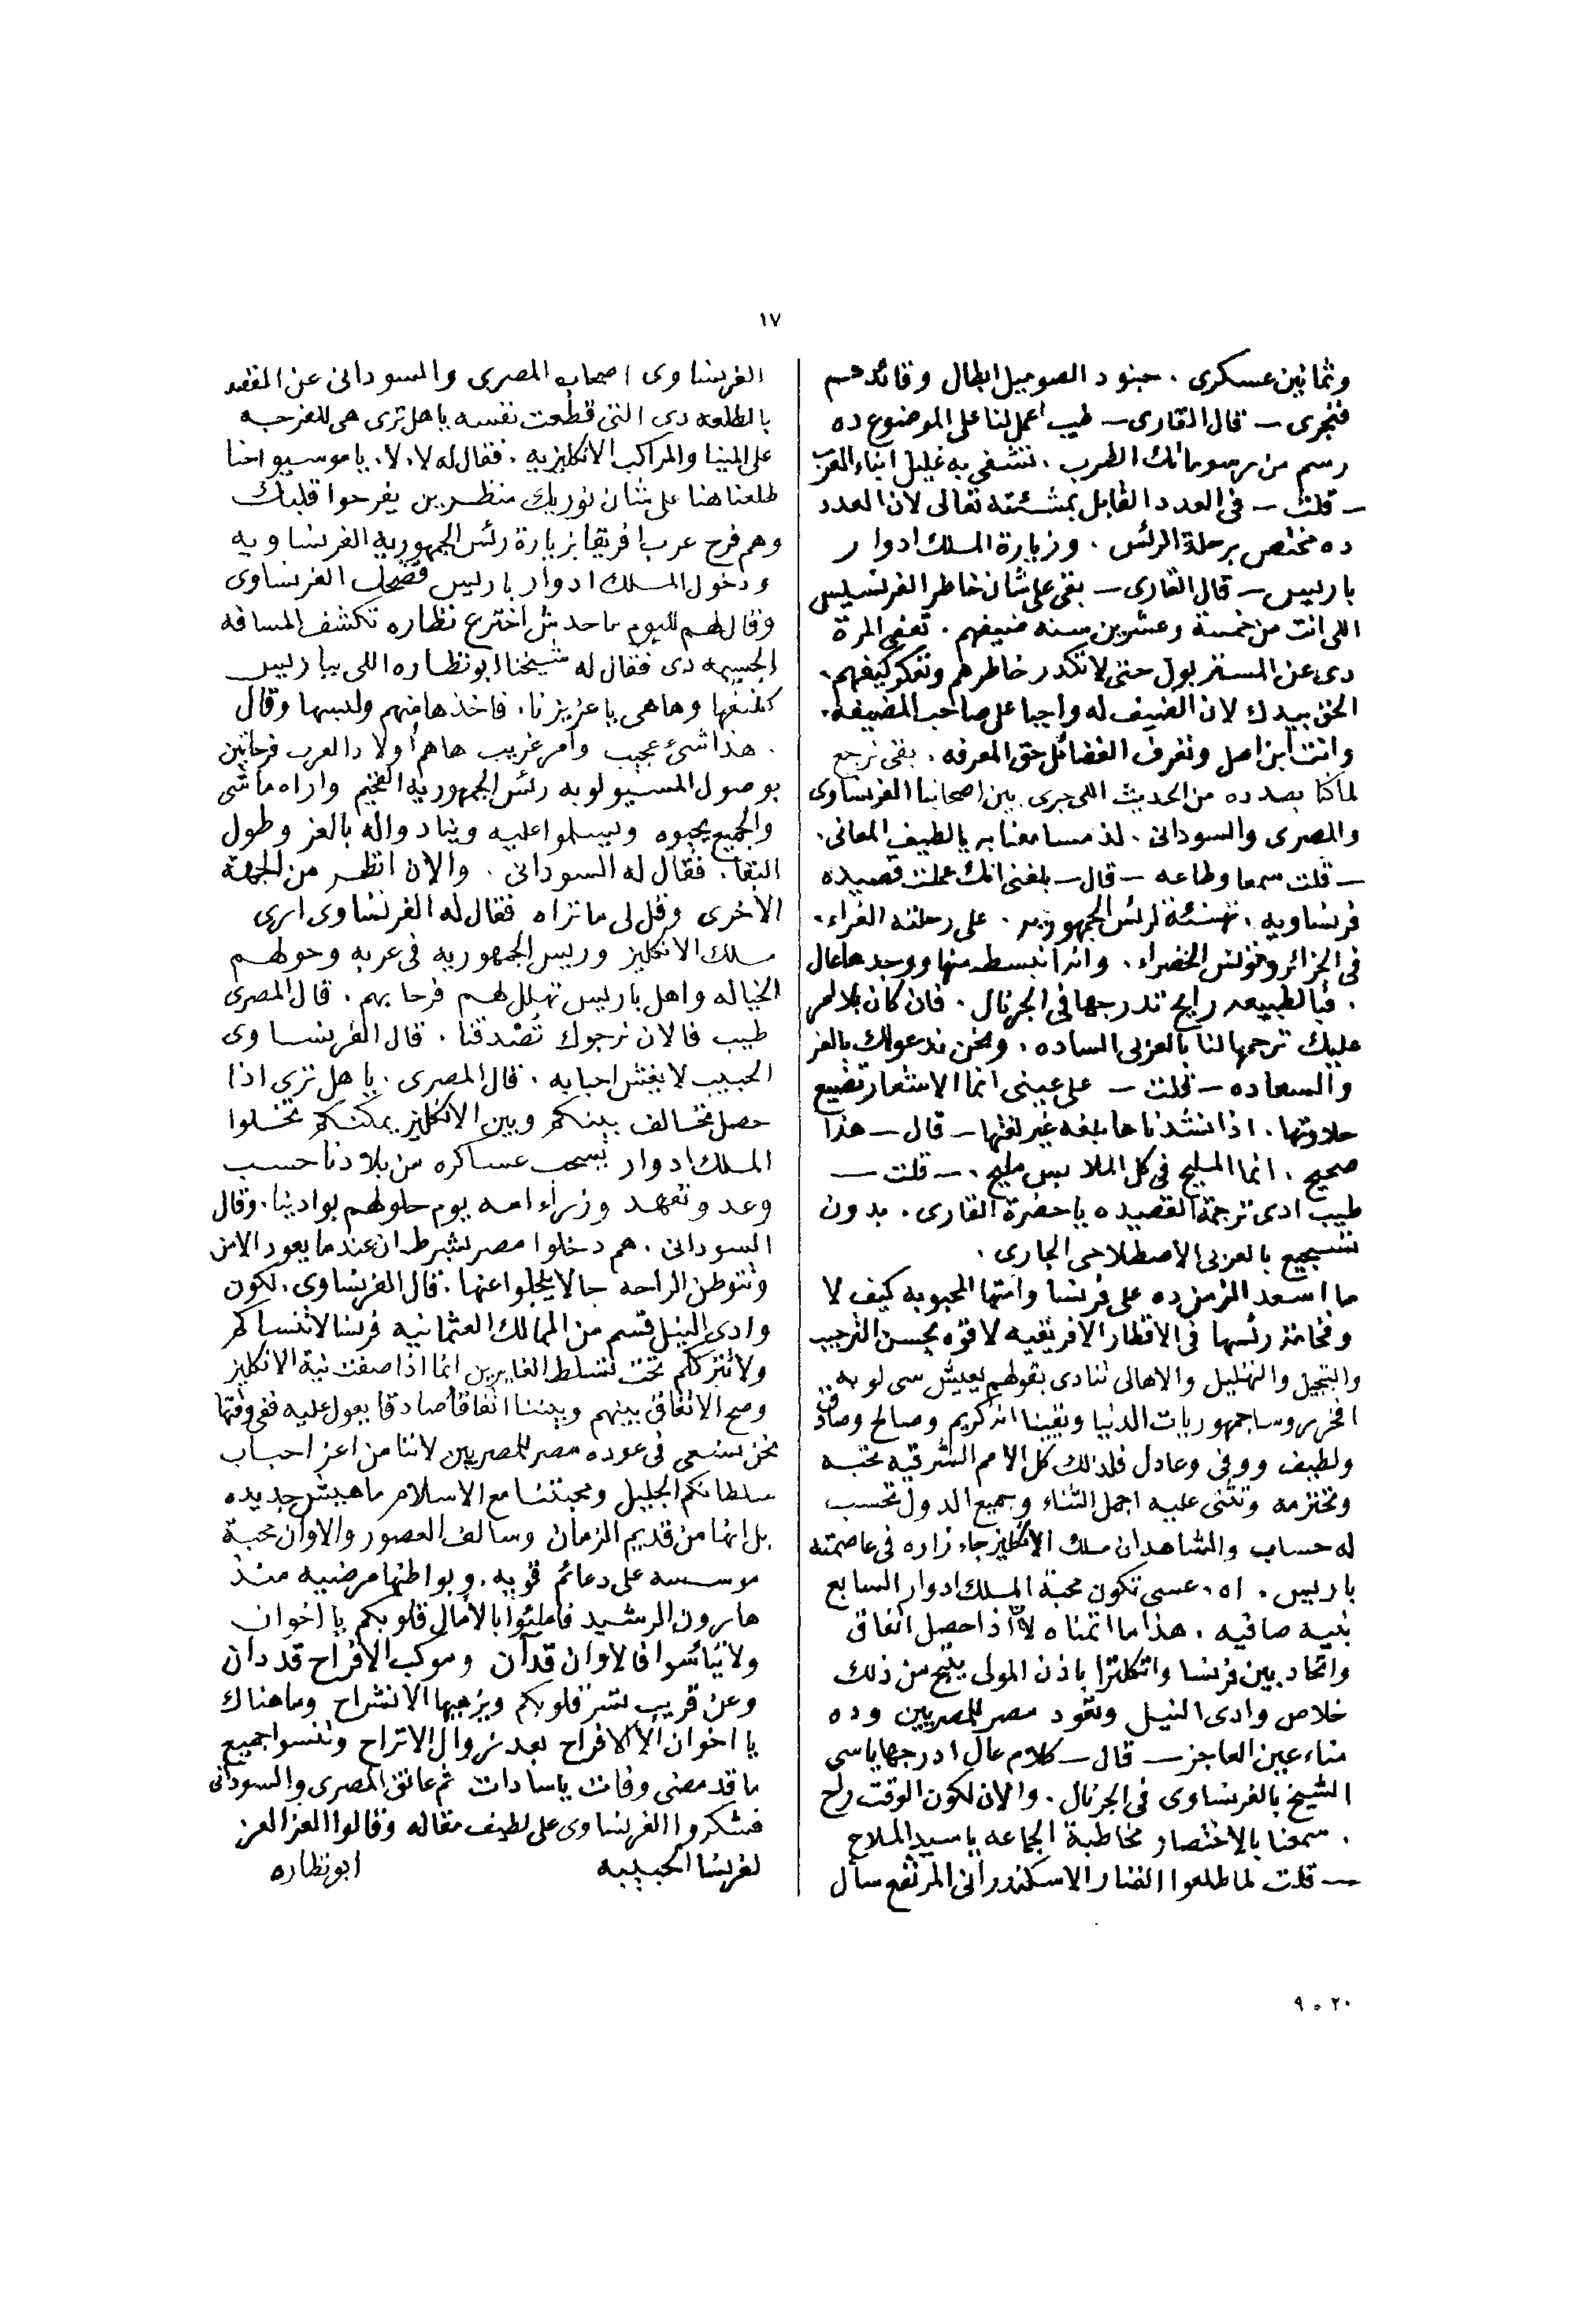 ١٧
وثمانين عسكرى . جنود الصوميل ابطال وقائدهم
فنجرى – قال القارى – طيب اعمل لنا على الموضوع ده
رسم من رسوماتك الطرب . تشفى به غليل ابناء العرب
– قلت – فى العدد القابل بمشئته تعالى لان العدد
ده مختص برحلة الرئس . وزيارة الملك ادوار
باريس – قال القارى – بقى على شان خاطر الفرنسيس
اللى انت من خمسة وعشرين سنه ضيفهم . تعفى المرة
دى عن المستر بول حتى لا تكدر خاطرهم وتعكر كيفهم .
الحق بيدك لان الضيف له واجبا على صاحب المضيفه .
وانت ابن اصل وتعرف الفضائل حق المعرفه . بقى نرجع
لما كنا بصدده من الحديث اللى جرى بين اصحابنا الفرنساوى
والمصرى والسودانى . لذ مسامعنا به يا لطيف المعانى .
– قلت سمعا وطاعه – قال – بلغنى انك عملت قصيده
فرنساويه . تهنئة لرئس الجمهوريه . على رحلته الغراء .
فى الجزائر وتونس الخضراء . وانه انبسط منها ووجدها عال
. فبالطبيعه رايح تدرجها فى الجرنال . فان كان بلا امر
عليك ترجمها لنا بالعربى الساده . ونحن ندعولك بالعز
والسعاده – قلت – على عينى انما الاشعار تضيع
حلاوتها . اذا نشدناها بلغه غير لغتها – قال – هذا
صحيح . انما المليح فى كل الملابس مليح . – قلت –
طيب ادى ترجمة القصيده يا حضرة القارى . بدون
تسجيع بالعربى الاصطلاحى الجارى .
ما اسعد الزمن ده على فرنسا وامتها المحبوبه كيف لا
وفخامة رئسها فى الاقطار الافريقيه لاقوه بحسن الترحيب
والتبجيل والتهليل والاهالى تنادى بقولهم يعيش سى لوبه
افخر روسا جمهوريات الدنيا ويقينا انه كريم وصالح وصادق
ولطيف ووفى وعادل فلذلك كل الامم الشرقيه تحبه
وتحترمه وتثنى عليه اجمل الثناء وجميع الدول تحسب
له حساب والشاهد ان ملك الانكليز جاء زاره فى عاصمته
باريس . اه . عسى تكون محبة الملك ادوار السابع
بنيه صافيه . هذا ما اتمناه لانه اذا حصل اتفاق
واتحاد بين فرنسا وانكلترا باذن المولى ينتج من ذلك
خلاص وادى النيل وتعود مصر للمصريين وده
مناء عين العاجز – قال – كلام عال ادرجها ياسى
الشيخ بالفرنساوى فى الجرنال . والان لكون الوقت راح
. سمعنا بالاختصار مخاطبة الجماعه يا سيد الملاح
– قلت لما طلعوا الفنار الاسكندرانى المرتفع سأل
الفرنساوى اصحابه المصرى والسودانى عن المقصد
بالطلعه دى التى قطعت نفسه يا هل ترى هى للفرجه
على المينا والمراكب الانكليزيه . فقال له لا . لا . يا موسيو احنا
طلعنا هنا على شان نوريك منظرين يفرحوا قلبك
وهم فرح عرب افريقا بزيارة رئس الجمهوريه الفرنساويه
ودخول الملك ادوار باريس فضحك الفرنساوى
وقال لهم لليوم ما حدش اخترع نظاره تكشف المسافه
الجسيمه دى فقال له شيخنا ابو نظاره اللى بباريس
كشفها وها هى يا عزيزنا . فاخذها منهم ولبسها وقال
. هذا شئ عجيب وامر غريب ها هم اولاد العرب فرحانين
بوصول المسيو لوبه رئس الجمهوريه الفخيم واراه ماشى
والجميع يحيوه ويسلموا عليه وينادوا له بالعز وطول
البقاء . فقال له السودانى . والان انظر من الجهة
الاخرى وقل لى ما تراه فقال له الفرنساوى ارى
ملك الانكليز وريس الجمهوريه فى عربه وحولهم
الخياله واهل باريس تهلل لهم فرحا بهم . قال المصرى
طيب فالان نرجوك تصدقنا . قال الفرنساوى
الحبيب لا يغش احبابه . قال المصرى . يا هل ترى اذا
حصل تحالف بينكم وبين الانكليز يمكنكم تخلوا
الملك ادوار يسحب عساكره من بلادنا حسب
وعد وتعهد وزراء امه يوم حلولهم بوادينا . وقال
السودانى . هم دخلوا مصر بشرط ان عندما يعود الامن
وتتوطن الراحه حالا يجلوا عنها . قال الفرنساوى . لكون
وادى النيل قسم من الممالك العثمانيه فرنسا لا تنساكم
ولا تترككم تحت تسلط الغايرين انما اذا صفت نية الانكليز
وصح الاتفاق بينهم وبيننا اتفاقا صادقا يعول عليه ففى وقتها
نحن نسعى فى عوده مصر للمصريين لاننا من اعز احباب
سلطانكم الجليل ومحبتنا مع الاسلام ما هيش جديده
بل انها من قديم الزمان وسالف العصور والاوان محبة
موسسه على دعائم قويه . وبواطنها مرضيه منذ
هارون الرشيد فاملئوا بالامال قلوبكم يا اخوان
ولا تيائسوا فالاوان قد آن وموكب الافراح قد دان
وعن قريب تسر قلوبكم ويزهيها الانشراح وما هناك
يا اخوان الا الافراح بعد زوال الاتراح وتنسوا جميع
ما قد مضى وفات يا سادات ثم عانق المصرى والسودانى
فشكروا الفرنساوى على لطيف مقاله وقالوا العز العز
لفرنسا الحبيبه ابو نظاره
٢٠ ٥ ٩